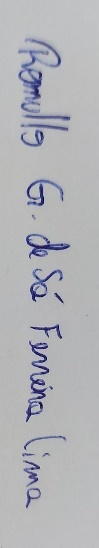 Romullo G. de Sá Ferreira Lima